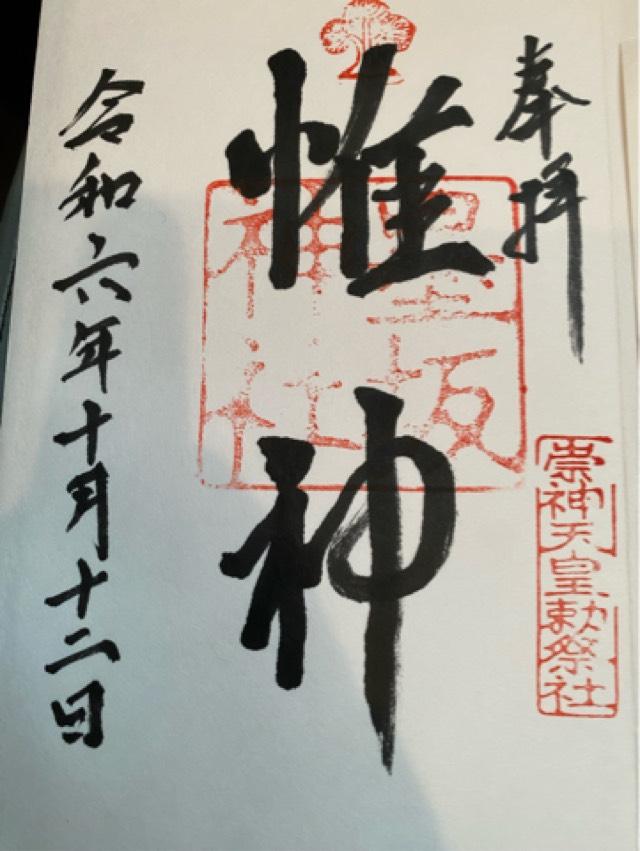 奉拝
崇神天皇勅祭社
惟神
墨坂
神社
令和六年十月十二日